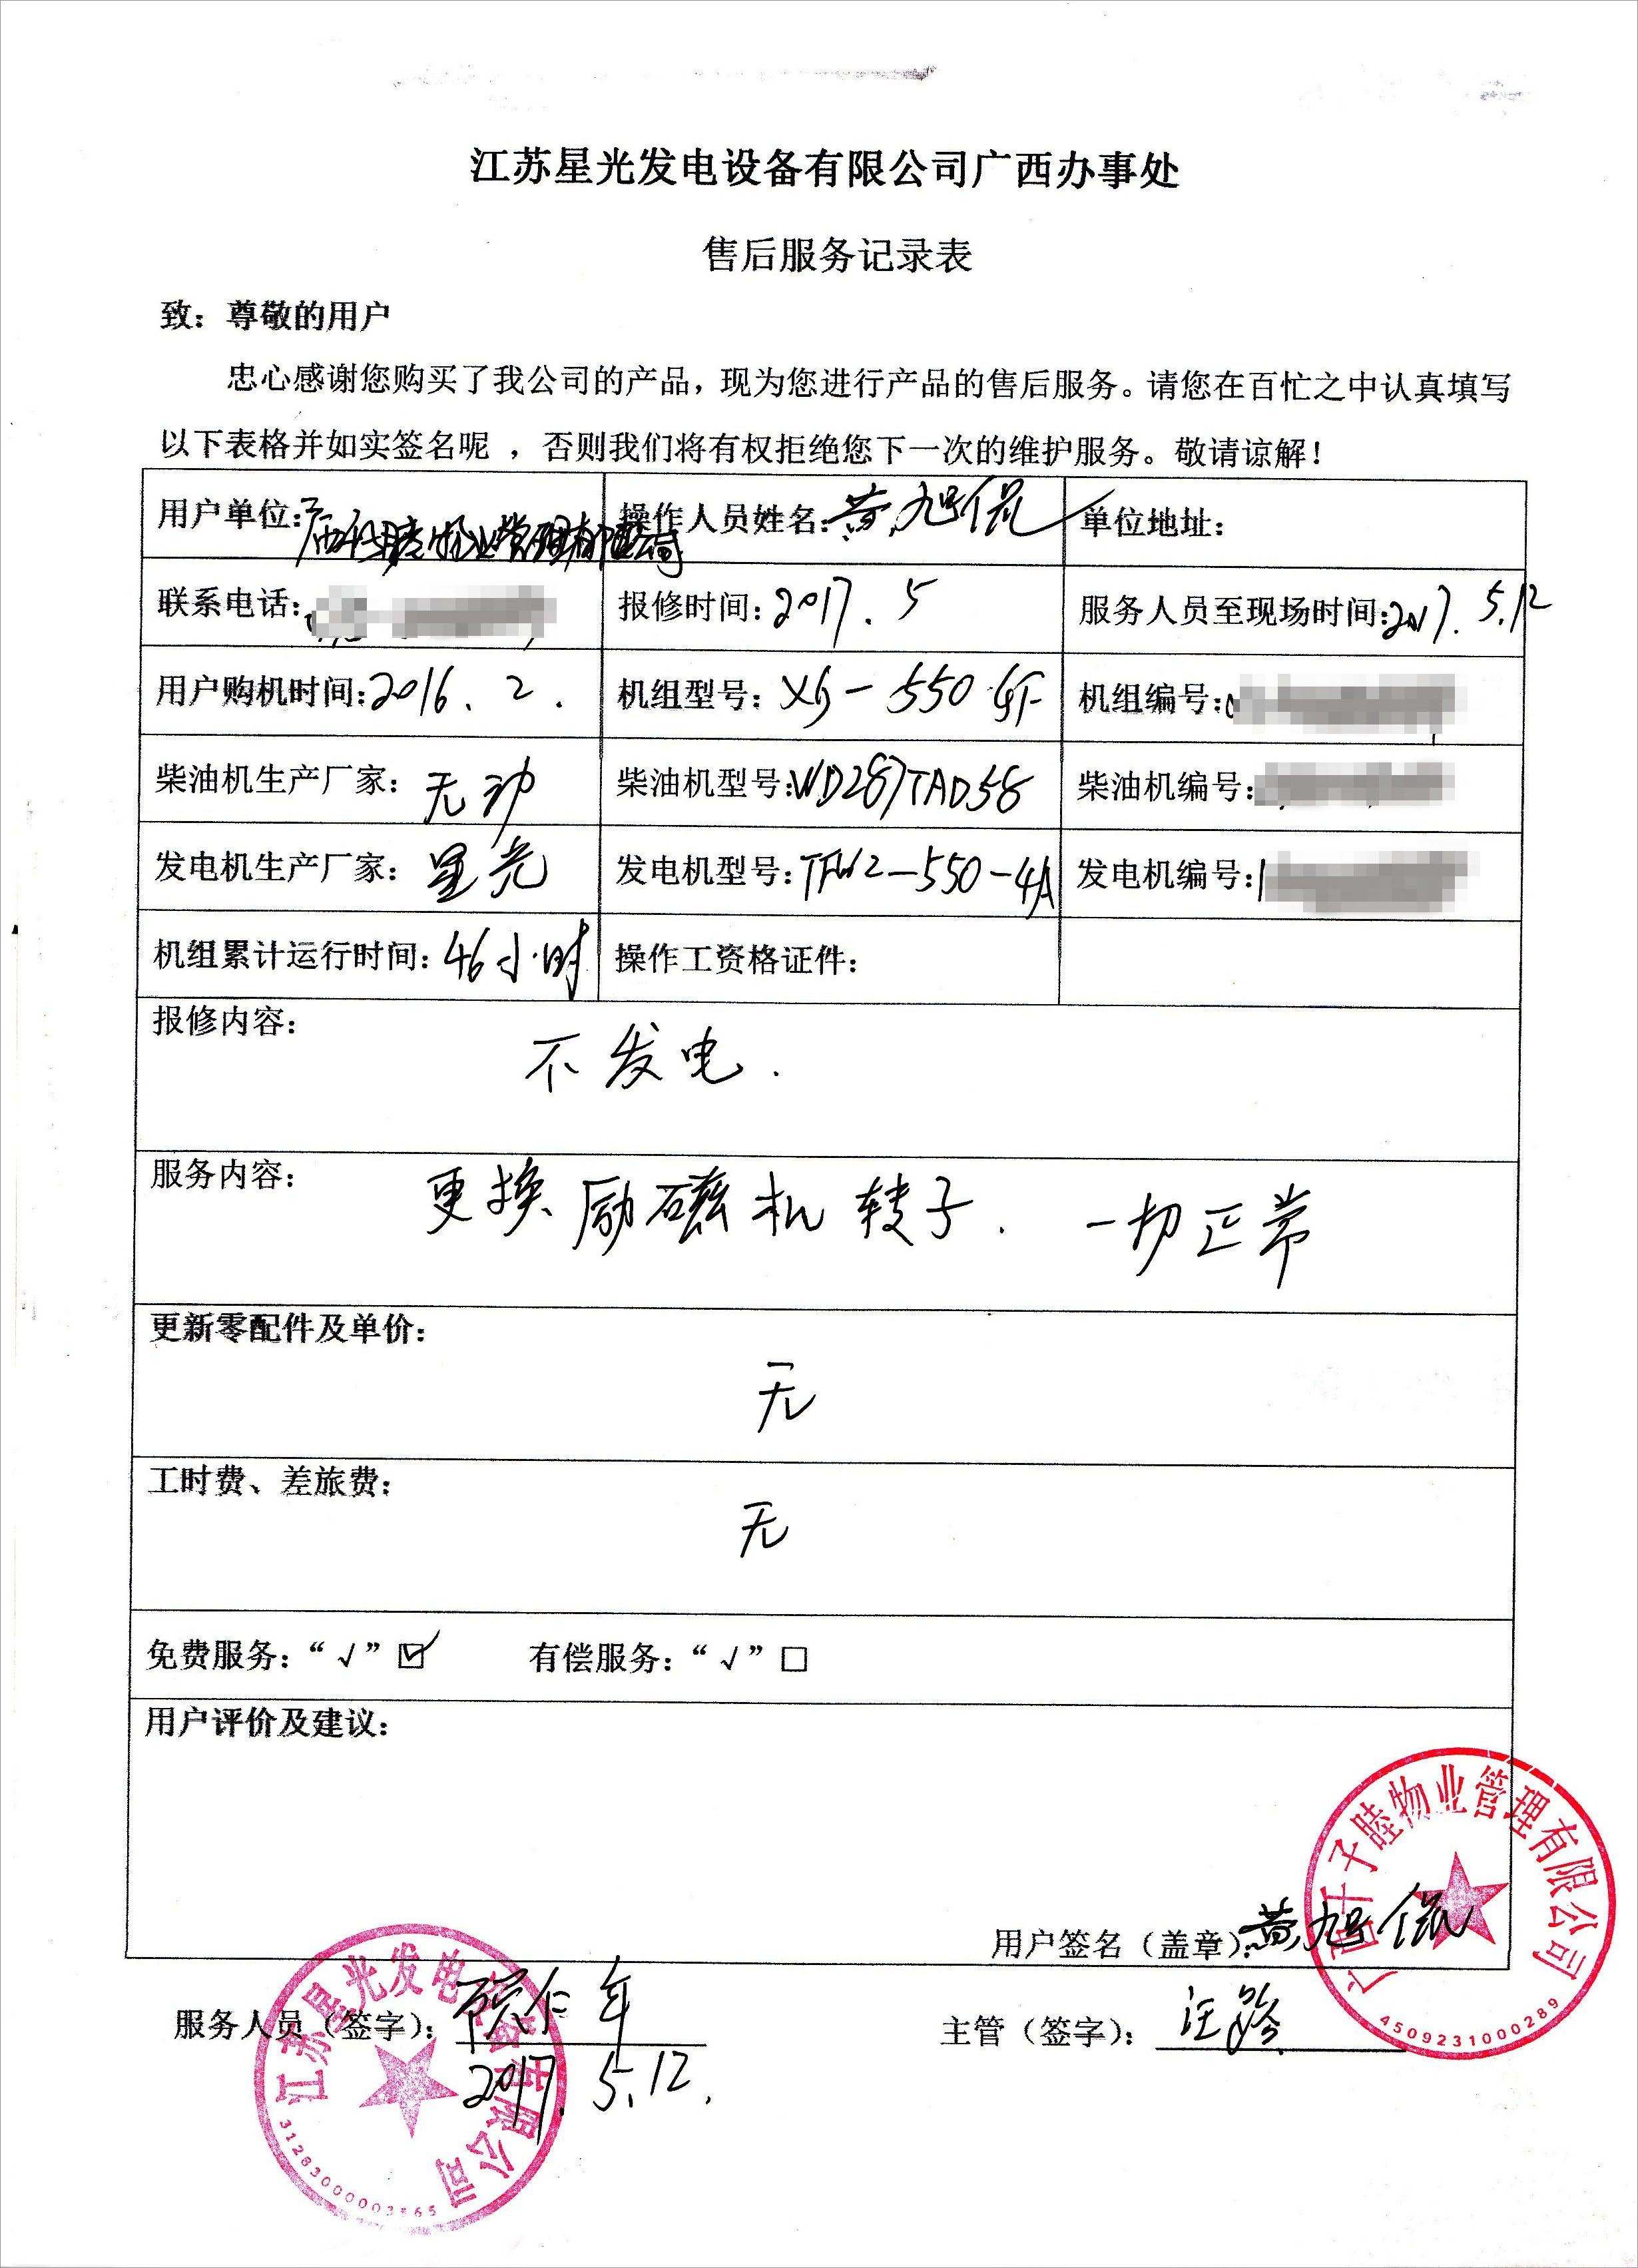 江苏星光发电设备有限公司广西办事处
售后服务记录表
致：尊敬的用户
忠心感谢您购买了我公司的产品，现为您进行产品的售后服务。请您在百忙之中认真填写
以下表格并如实签名呢 ，否则我们将有权拒绝您下一次的维护服务。敬请谅解！
用户单位：广西仟睦物业管理有限公司 操作人员姓名：黄旭侃 单位地址：
联系电话： 报修时间：2017.5 服务人员至现场时间：2017.5.12
用户购机时间：2016.2. 机组型号：XG-550GF 机组编号：
柴油机生产厂家：无动 柴油机型号：WD287TAD58 柴油机编号：
发电机生产厂家：星光 发电机型号：TFW2-550-4A 发电机编号：1
机组累计运行时间：46小时 操作工资格证件：
报修内容：
不发电.
服务内容：
更换励磁机转子. 一切正常
更新零配件及单价：
无
工时费、差旅费：
无
免费服务：“√”☑ 有偿服务：“√”□
用户评价及建议：
用户签名（盖章）：黄旭侃
服务人员（签字）： 主管（签字）：汪路
2017.5.12.
江苏星光发电设备有限公司
31283000003565
物业管理有限公司
4509231000289